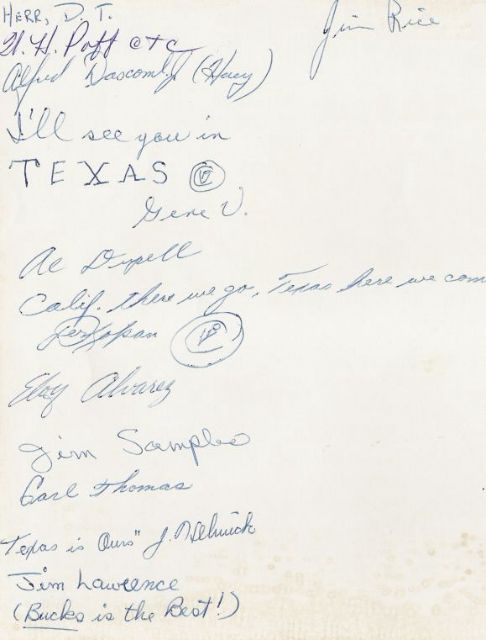 HERR, D. T.
Jim Rice
H. H. Poff etc
Alfred Dascomb, Jr (Huey)
I'll see you in
TEXAS
Gene V.
Al
Calif. there we go, Texas here we com
Eloy Alvarez
Jim Samples
Earl Thomas
Texas is Ours" J.
Jim Lawrence
(Bucks is the Best!)